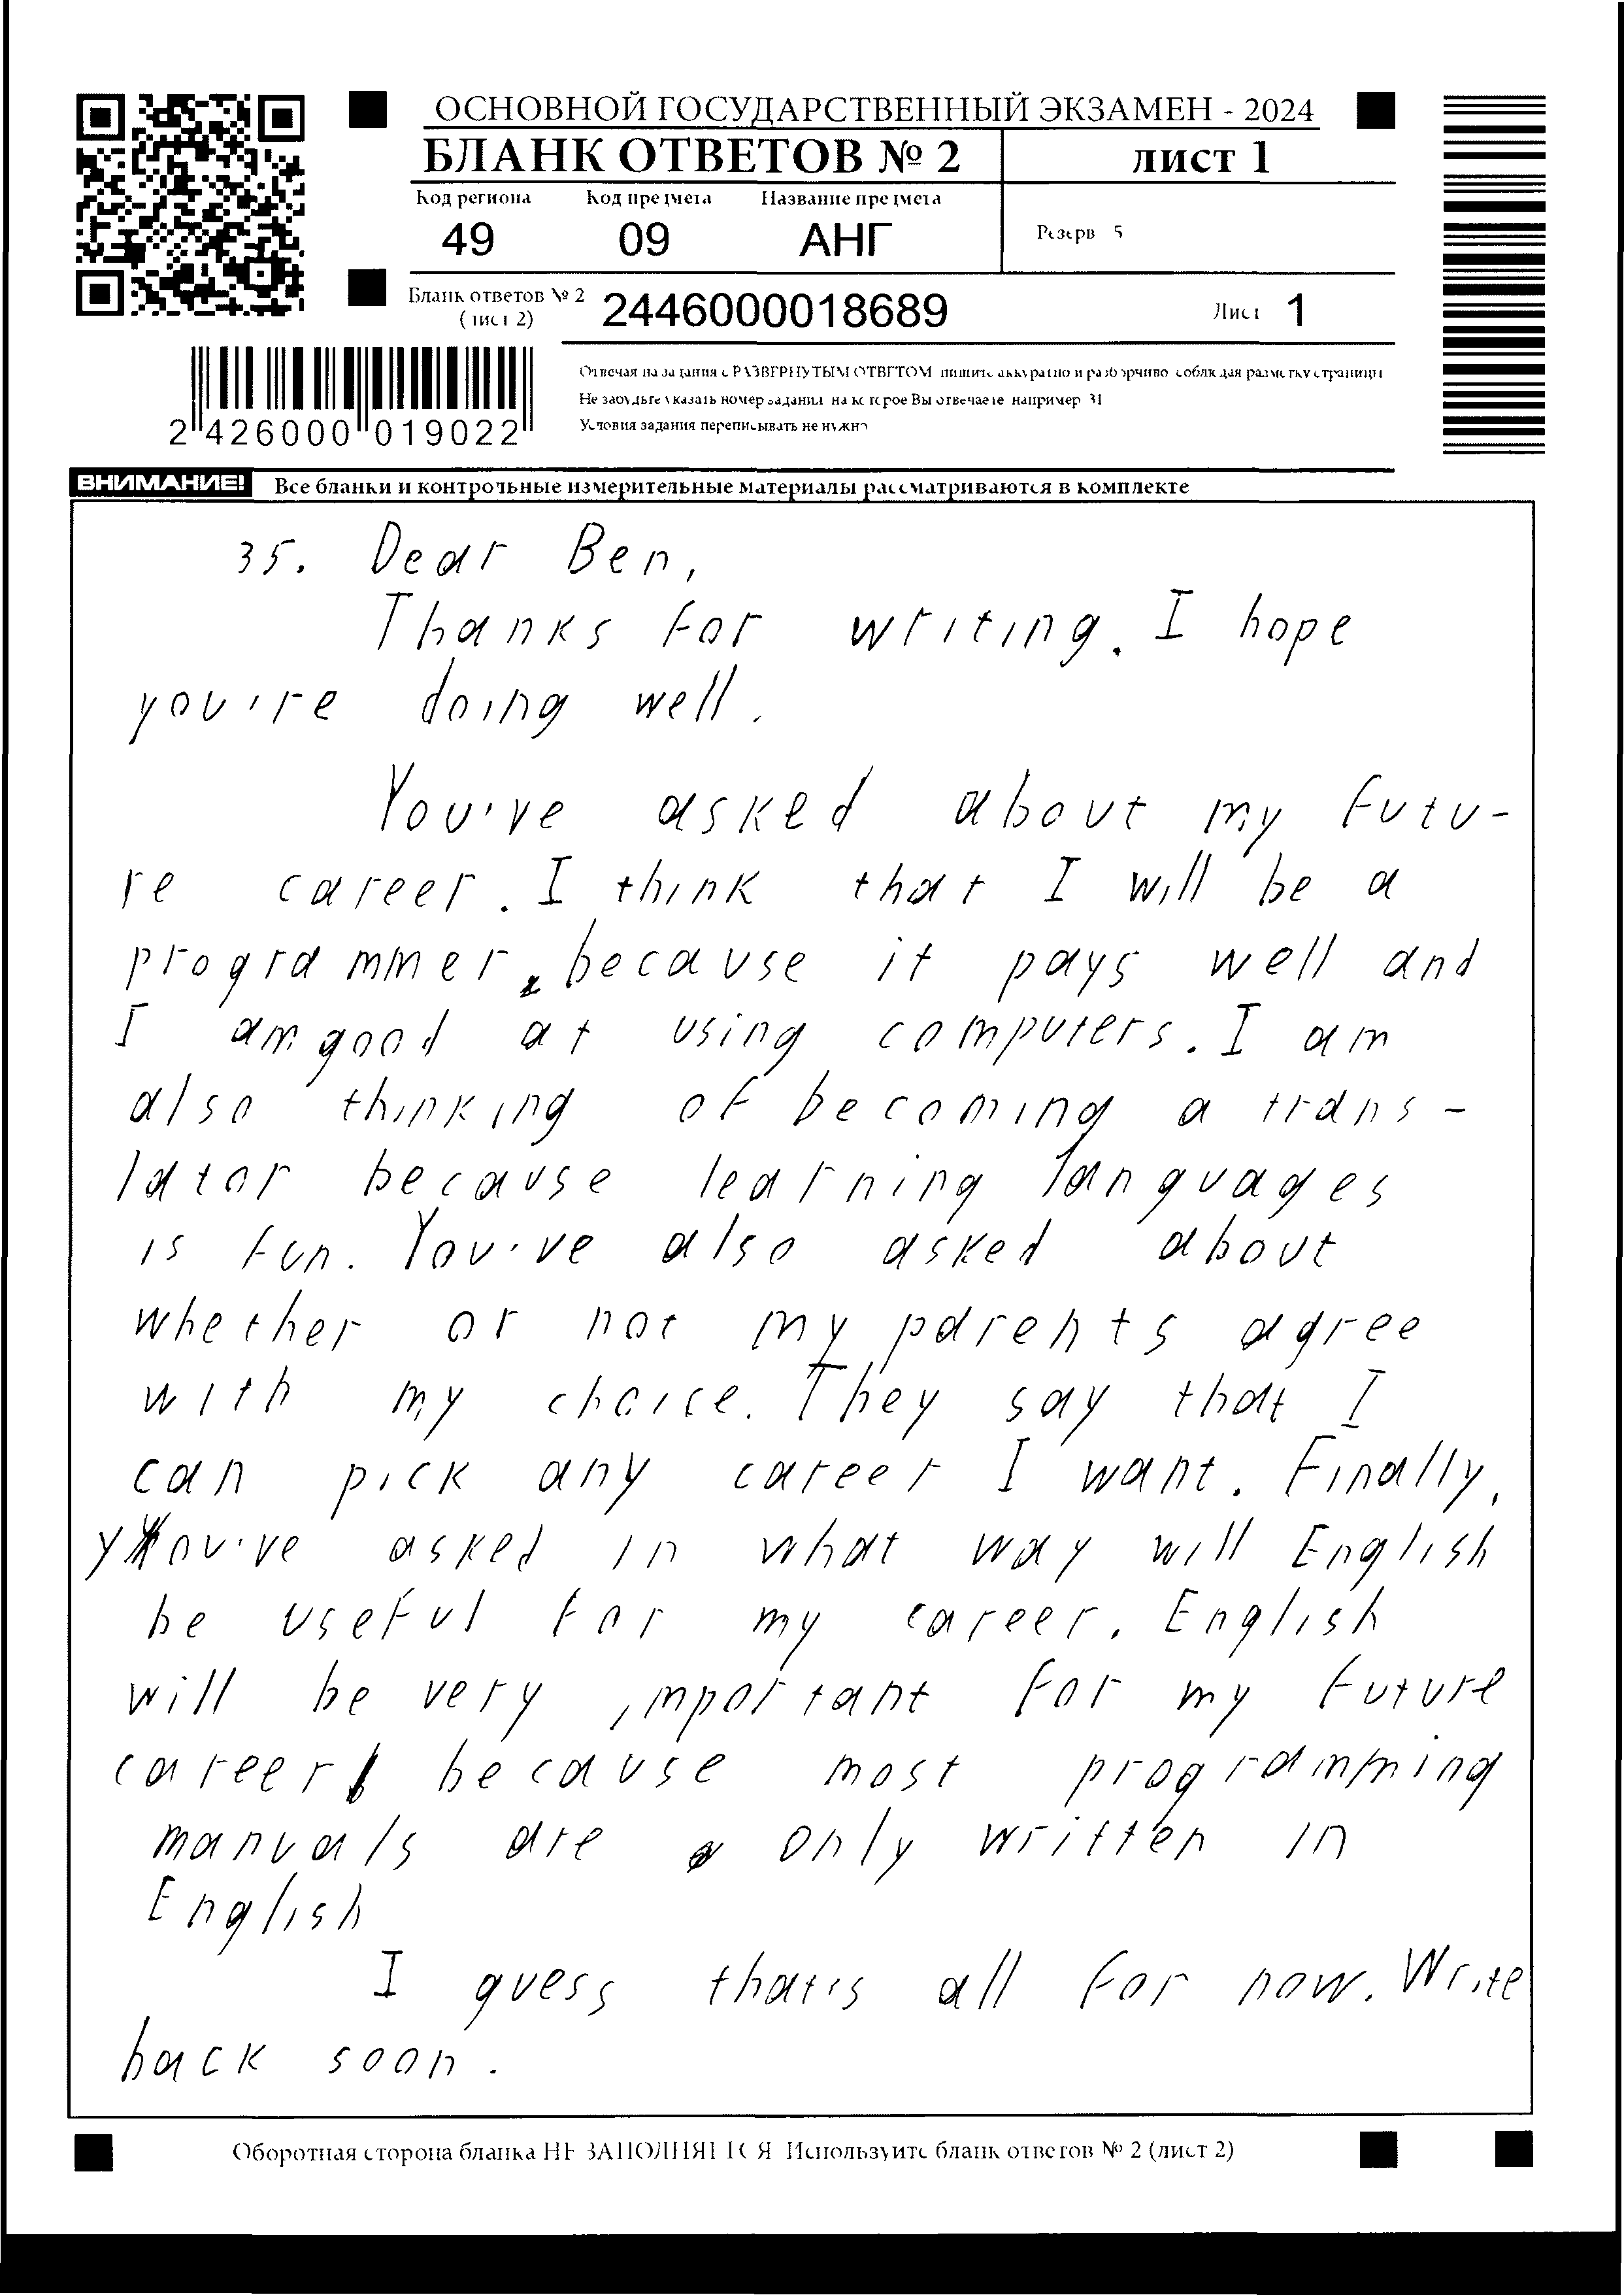 ОСНОВНОЙ ГОСУДАРСТВЕННЫЙ ЭКЗАМЕН - 2024
БЛАНК ОТВЕТОВ № 2
лист 1
Код региона
Код предмета
Название предмета
49
09
АНГ
Резерв 5
Бланк ответов № 2
(лист 2)
2446000018689
Лист 1
2 426000 019022
Отвечая на задания с РАЗВЕРНУТЫМ ОТВЕТОМ пишите аккуратно и разборчиво соблюдая разметку страницы
Не забудьте указать номер задания на которое Вы отвечаете например 31
Условия задания переписывать не нужно
ВНИМАНИЕ!
Все бланки и контрольные измерительные материалы рассматриваются в комплекте
35. Dear Ben,
Thanks for writing. I hope
you're doing well.
You've asked about my futu-
re career. I think that I will be a
programmer, because it pays well and
I am good at using computers. I am
also thinking of becoming a trans-
lator because learning languages
is fun. You've also asked about
whether or not my parents agree
with my choice. They say that I
can pick any career I want. Finally,
you've asked in what way will English
be useful for my career. English
will be very important for my future
career because most programming
manuals are only written in
English
I guess that's all for now. Write
back soon.
Оборотная сторона бланка НЕ ЗАПОЛНЯЕТСЯ Используйте бланк ответов № 2 (лист 2)